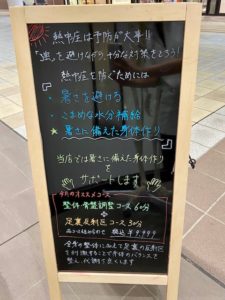 熱中症は予防が大事!!
"熱"を避けながら、十分な対策をとろう!
熱中症を防ぐためには
・暑さを避ける
・こまめな水分補給
★暑さに備えた身体作り
当店では暑さに備えた身体作り
を
サポートします
今月のオススメコース
整体・骨盤調整コース 60分
+
足裏反射区コース 30分
税込 ¥9,999
全身の整体に加えて足裏の反射区
を刺激することで身体のバランスを
整え、代謝も良くします